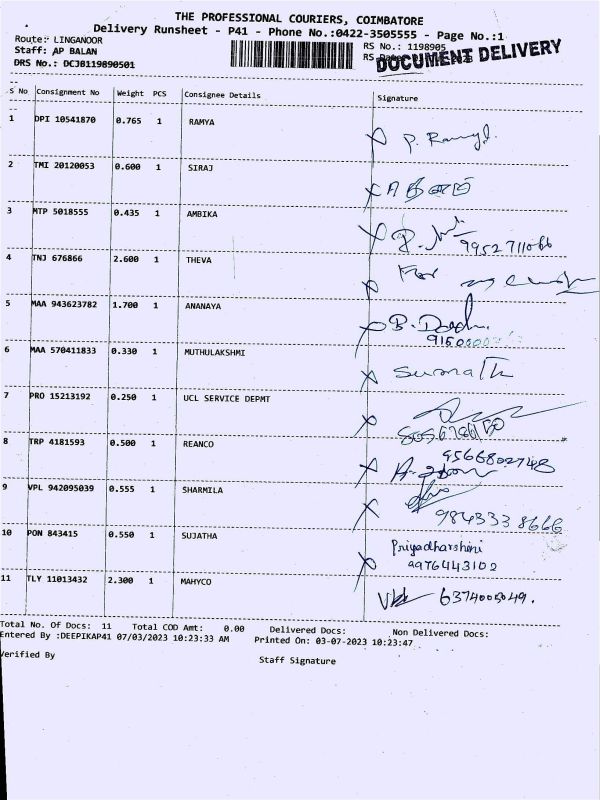 THE PROFESSIONAL COURIERS, COIMBATORE
Delivery Runsheet - P41 - Phone No.:0422-3505555 - Page No.:1
Route: LINGANOOR
RS No.: 1198905
Staff: AP BALAN
DOCUMENT DELIVERY
DRS No.: DCJB119890501
S No Consignment No Weight PCS Consignee Details Signature
1 DPI 10541870 0.765 1 RAMYA
2 TMI 20120053 0.600 1 SIRAJ
3 MTP 5018555 0.435 1 AMBIKA
9952711066
4 TNJ 676866 2.600 1 THEVA
For
5 MAA 943623782 1.700 1 ANANAYA
B.
6 MAA 570411833 0.330 1 MUTHULAKSHMI
7 PRO 15213192 0.250 1 UCL SERVICE DEPMT
8 TRP 4181593 0.500 1 REANCO
9566802748
9 VPL 942095039 0.555 1 SHARMILA
9843338666
10 PON 843415 0.550 1 SUJATHA
Priyadharshini
9976443102
11 TLY 11013432 2.300 1 MAHYCO
6374005049.
Total No. Of Docs: 11 Total COD Amt: 0.00 Delivered Docs: Non Delivered Docs:
Entered By :DEEPIKAP41 07/03/2023 10:23:33 AM Printed On: 03-07-2023 10:23:47
Verified By
Staff Signature